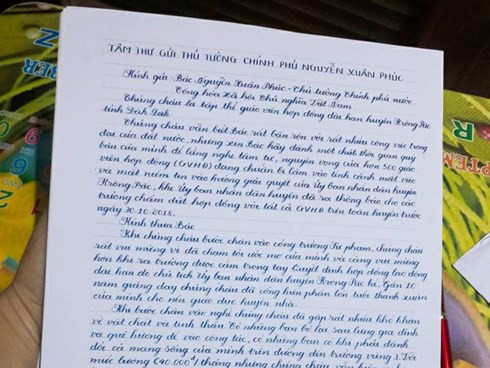 TÂM THƯ GỬI THỦ TƯỚNG CHÍNH PHỦ NGUYỄN XUÂN PHÚC
Kính gửi Bác Nguyễn Xuân Phúc - Thủ tướng Chính phủ nước
Cộng hòa Xã hội Chủ nghĩa Việt Nam
Chúng cháu là tập thể giáo viên hợp đồng dài hạn huyện Krông Pắc
tỉnh Đắk Lắk.
Chúng cháu vẫn biết Bác rất bận rộn với rất nhiều công việc trọng
đại của đất nước, nhưng xin Bác hãy dành một chút thời gian quý
báu của mình để lắng nghe tâm tư, nguyện vọng của hơn 500 giáo
viên hợp đồng (GVHĐ) đang chuẩn bị lâm vào tình cảnh mất việc
và mất niềm tin vào hướng giải quyết của Ủy ban nhân dân huyện
Krông Pắc, khi Ủy ban nhân dân huyện đã ra thông báo cho các
trường chấm dứt hợp đồng với tất cả GVHĐ trên toàn huyện trước
ngày 30.10.2018.
Kính thưa Bác
Khi chúng cháu bước chân vào cổng trường Sư phạm, chúng cháu
rất vui mừng vì đã chạm tới ước mơ của mình và càng vui mừng
hơn khi ra trường được cầm trong tay Quyết định hợp đồng lao động
dài hạn do chủ tịch Ủy ban nhân dân huyện Krông Pắc kí. Gần 10
năm giảng dạy chúng cháu đã cống hiến phần lớn tuổi thanh xuân
của mình cho nền giáo dục huyện nhà.
Khi bước chân vào nghề chúng cháu đã gặp rất nhiều khó khăn
về vật chất và tinh thần. Có những bạn bỏ lại sau lưng gia đình
và quê hương để vào công tác, có những bạn có khi phải đánh
đổi cả mạng sống của mình trên đường đến trường vùng 3. Với
mức lương 640.000đ/ tháng nhưng chúng cháu vẫn